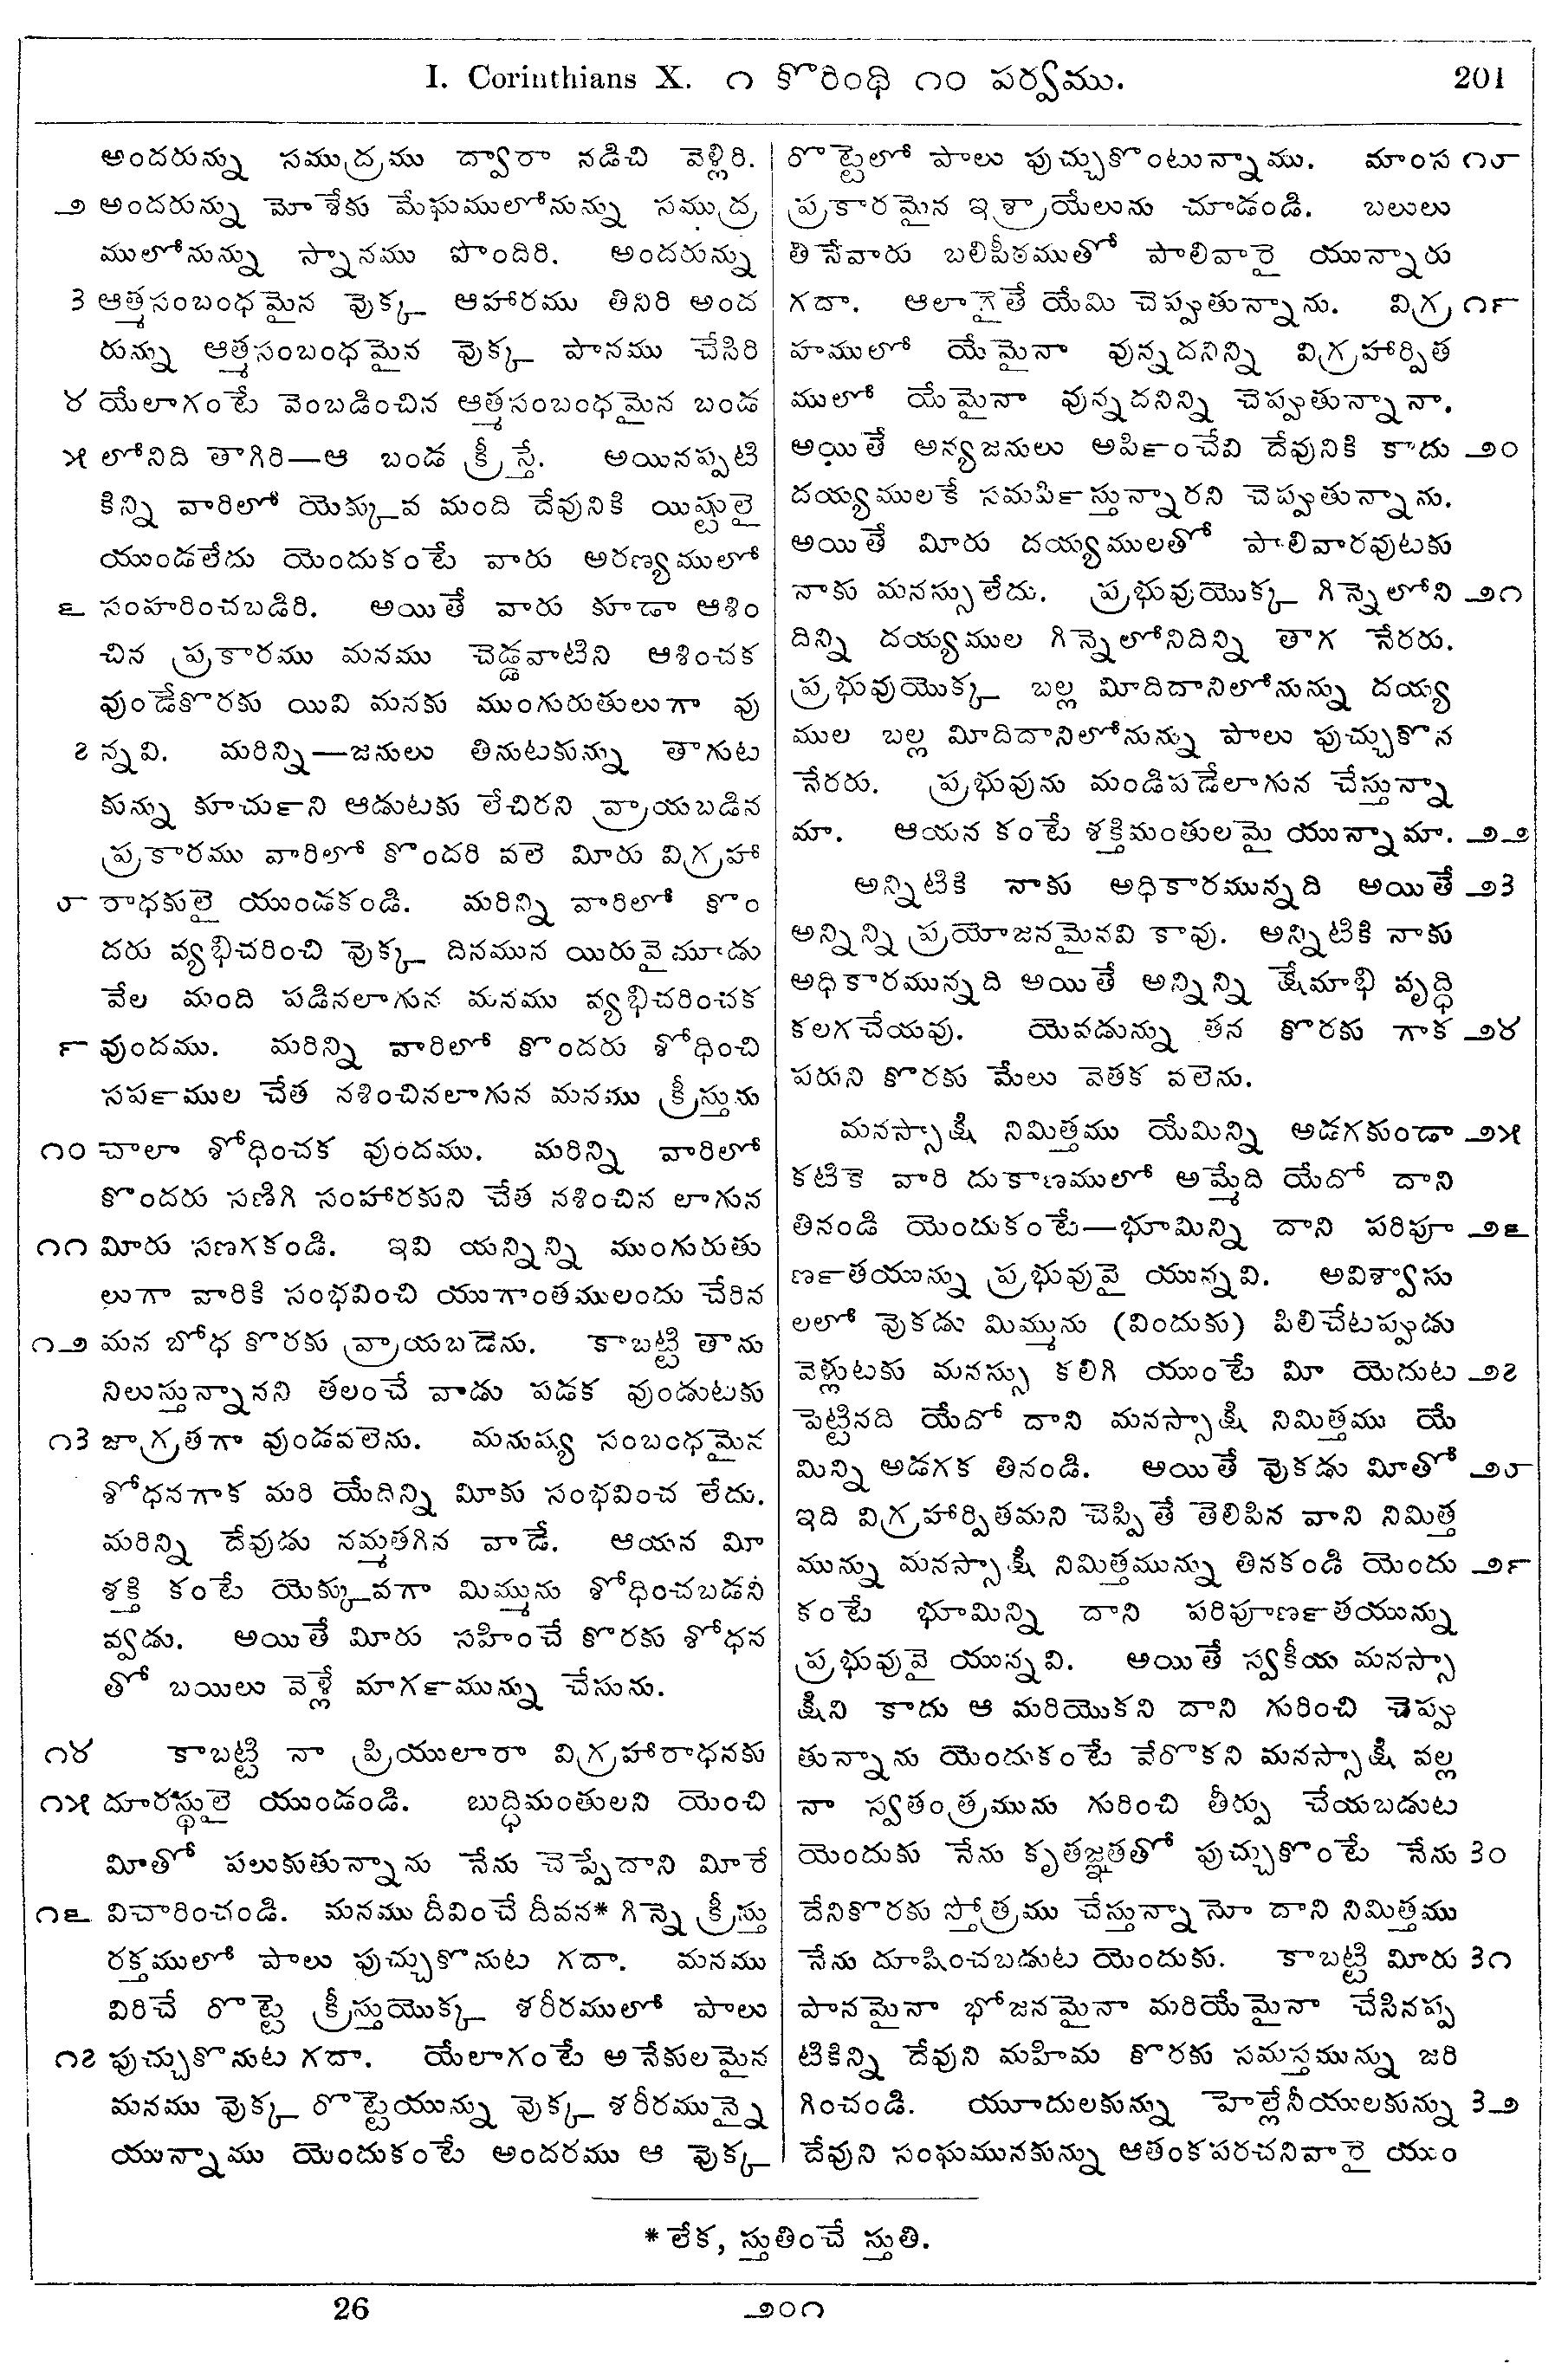 I. Corinthians X. ౧ కొరింథి ౧౦ పర్వము. 201
అందరున్ను సముద్రము ద్వారా నడిచి వెళ్లిరి.
౨ అందరున్ను మోశేకు మేఘములోనున్ను సముద్ర
ములోనున్ను స్నానము పొందిరి. అందరున్ను
౩ ఆత్మసంబంధమైన వొక్క ఆహారము తినిరి అంద
రున్ను ఆత్మసంబంధమైన వొక్క పానము చేసిరి
౪ యేలాగంటే వెంబడించిన ఆత్మసంబంధమైన బండ
౫ లోనిది తాగిరి—ఆ బండ క్రీస్తే. అయినప్పటి
కిన్ని వారిలో యెక్కువ మంది దేవునికి యిష్టులై
యుండలేదు యెందుకంటే వారు అరణ్యములో
౬ సంహరించబడిరి. అయితే వారు కూడా ఆశిం
చిన ప్రకారము మనము చెడ్డవాటిని ఆశించక
వుండేకొరకు యివి మనకు ముంగురుతులుగా వు
౭ న్నవి. మరిన్ని—జనులు తినుటకున్ను తాగుట
కున్ను కూచుర్ని ఆడుటకు లేచిరని వ్రాయబడిన
ప్రకారము వారిలో కొందరి వలె మీరు విగ్రహా
౮ రాధకులై యుండకండి. మరిన్ని వారిలో కొం
దరు వ్యభిచరించి వొక్క దినమున యిరువైమూడు
వేల మంది పడినలాగున మనము వ్యభిచరించక
౯ వుందము. మరిన్ని వారిలో కొందరు శోధించి
సర్పముల చేత నశించినలాగున మనము క్రీస్తును
౧౦ చాలా శోధించక వుందము. మరిన్ని వారిలో
కొందరు సణిగి సంహారకుని చేత నశించిన లాగున
౧౧ మీరు సణగకండి. ఇవి యన్నిన్ని ముంగురుతు
లుగా వారికి సంభవించి యుగాంతములందు చేరిన
౧౨ మన బోధ కొరకు వ్రాయబడెను. కాబట్టి తాను
నిలుస్తున్నానని తలంచే వాడు పడక వుండుటకు
౧౩ జాగ్రతగా వుండవలెను. మనుష్య సంబంధమైన
శోధనగాక మరి యేదిన్ని మీకు సంభవించ లేదు.
మరిన్ని దేవుడు నమ్మతగిన వాడే. ఆయన మీ
శక్తి కంటే యెక్కువగా మిమ్మును శోధించబడనీ
వ్వడు. అయితే మీరు సహించే కొరకు శోధన
తో బయిలు వెళ్లే మార్గమున్ను చేసును.
౧౪ కాబట్టి నా ప్రియులారా విగ్రహారాధనకు
౧౫ దూరస్థులై యుండండి. బుద్ధిమంతులని యెంచి
మీతో పలుకుతున్నాను నేను చెప్పేదాని మీరే
౧౬ విచారించండి. మనము దీవించే దీవన* గిన్నె క్రీస్తు
రక్తములో పాలు పుచ్చుకొనుట గదా. మనము
విరిచే రొట్టె క్రీస్తుయొక్క శరీరములో పాలు
౧౭ పుచ్చుకొనుట గదా. యేలాగంటే అనేకులమైన
మనము వొక్క రొట్టెయున్ను వొక్క శరీరమున్నై
యున్నాము యెందుకంటే అందరము ఆ వొక్క
రొట్టెలో పాలు పుచ్చుకొంటున్నాము. మాంస ౧౮
ప్రకారమైన ఇశ్రాయేలును చూడండి. బలులు
తినేవారు బలిపీఠముతో పాలివారై యున్నారు
గదా. ఆలాగైతే యేమి చెప్పుతున్నాను. విగ్ర ౧౯
హములో యేమైనా వున్నదనిన్ని విగ్రహార్పిత
ములో యేమైనా వున్నదనిన్ని చెప్పుతున్నానా.
అయితే అన్యజనులు అర్పించేవి దేవునికి కాదు ౨౦
దయ్యములకే సమర్పిస్తున్నారని చెప్పుతున్నాను.
అయితే మీరు దయ్యములతో పాలివారవుటకు
నాకు మనస్సులేదు. ప్రభువుయొక్క గిన్నెలోని ౨౧
దిన్ని దయ్యముల గిన్నెలోనిదిన్ని తాగ నేరరు.
ప్రభువుయొక్క బల్ల మీదిదానిలోనున్ను దయ్య
ముల బల్ల మీదిదానిలోనున్ను పాలు పుచ్చుకొన
నేరరు. ప్రభువును మండిపడేలాగున చేస్తున్నా
మా. ఆయన కంటే శక్తిమంతులమై యున్నామా. ౨౨
అన్నిటికి నాకు అధికారమున్నది అయితే ౨౩
అన్నిన్ని ప్రయోజనమైనవి కావు. అన్నిటికి నాకు
అధికారమున్నది అయితే అన్నిన్ని క్షేమాభి వృద్ధి
కలగచేయవు. యెవడున్ను తన కొరకు గాక ౨౪
పరుని కొరకు మేలు వెతక వలెను.
మనస్సాక్షి నిమిత్తము యేమిన్ని అడగకుండా ౨౫
కటికె వారి దుకాణములో అమ్మేది యేదో దాని
తినండి యెందుకంటే—భూమిన్ని దాని పరిపూ ౨౬
ర్ణతయున్ను ప్రభువువై యున్నవి. అవిశ్వాసు
లలో వొకడు మిమ్మును (విందుకు) పిలిచేటప్పుడు
వెళ్లుటకు మనస్సు కలిగి యుంటే మీ యెదుట ౨౭
పెట్టినది యేదో దాని మనస్సాక్షి నిమిత్తము యే
మిన్ని అడగక తినండి. అయితే వొకడు మీతో ౨౮
ఇది విగ్రహార్పితమని చెప్పితే తెలిపిన వాని నిమిత్త
మున్ను మనస్సాక్షి నిమిత్తమున్ను తినకండి యెందు ౨౯
కంటే భూమిన్ని దాని పరిపూర్ణతయున్ను
ప్రభువువై యున్నవి. అయితే స్వకీయ మనస్సా
క్షిని కాదు ఆ మరియొకని దాని గురించి చెప్పు
తున్నాను యెందుకంటే వేరొకని మనస్సాక్షి వల్ల
నా స్వతంత్రమును గురించి తీర్పు చేయబడుట
యెందుకు నేను కృతజ్ఞతతో పుచ్చుకొంటే నేను ౩౦
దేనికొరకు స్తోత్రము చేస్తున్నానో దాని నిమిత్తము
నేను దూషించబడుట యెందుకు. కాబట్టి మీరు ౩౧
పానమైనా భోజనమైనా మరియేమైనా చేసినప్ప
టికిన్ని దేవుని మహిమ కొరకు సమస్తమున్ను జరి
గించండి. యూదులకున్ను హెల్లేనీయులకున్ను ౩౨
దేవుని సంఘమునకున్ను ఆతంకపరచనివారై యుం
* లేక, స్తుతించే స్తుతి.
26 ౨౦౧